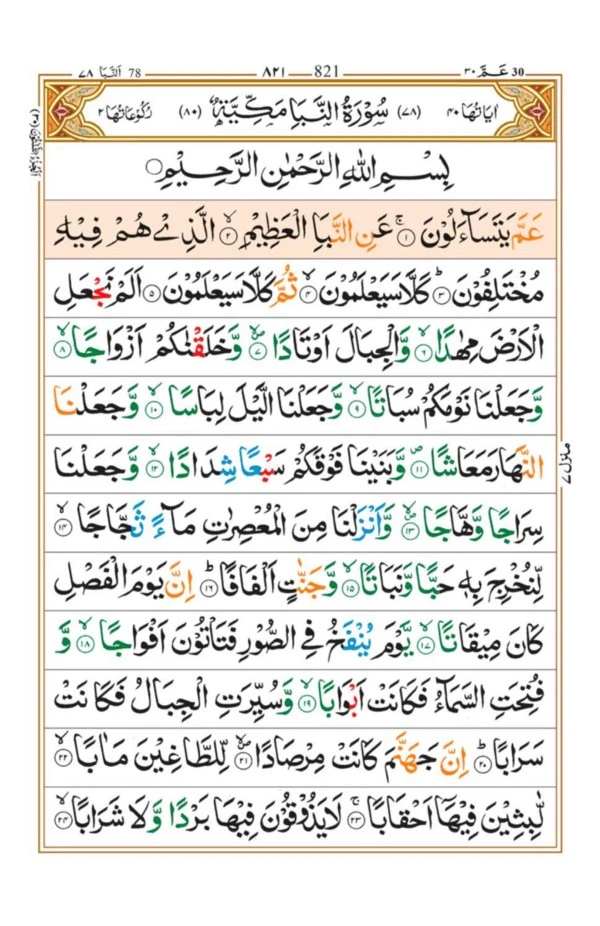 30 عَمَّ ٣٠ 821 ٨٢١ 78 اَلنَّبَا ٧٨
اٰيَاتُهَا ٤٠ (٧٨) سُوْرَةُ النَّبَاِ مَكِّيَّةٌ (٨٠) رُكُوْعَاتُهَا ٢
بِسْمِ اللّٰهِ الرَّحْمٰنِ الرَّحِيْمِ
عَمَّ يَتَسَآءَلُوْنَ ۚ﴿١﴾ عَنِ النَّبَاِ الْعَظِيْمِ ۙ﴿٢﴾ الَّذِيْ هُمْ فِيْهِ
مُخْتَلِفُوْنَ ؕ﴿٣﴾ كَلَّا سَيَعْلَمُوْنَ ۙ﴿٤﴾ ثُمَّ كَلَّا سَيَعْلَمُوْنَ ﴿٥﴾ اَلَمْ نَجْعَلِ
الْاَرْضَ مِهٰدًا ۙ﴿٦﴾ وَّالْجِبَالَ اَوْتَادًا ۪ۙ﴿٧﴾ وَّخَلَقْنٰكُمْ اَزْوَاجًا ۙ﴿٨﴾
وَّجَعَلْنَا نَوْمَكُمْ سُبَاتًا ۙ﴿٩﴾ وَّجَعَلْنَا الَّيْلَ لِبَاسًا ۙ﴿١٠﴾ وَّجَعَلْنَا
النَّهَارَ مَعَاشًا ۪﴿١١﴾ وَّبَنَيْنَا فَوْقَكُمْ سَبْعًا شِدَادًا ۙ﴿١٢﴾ وَّجَعَلْنَا
سِرَاجًا وَّهَّاجًا ۪ۙ﴿١٣﴾ وَّاَنْزَلْنَا مِنَ الْمُعْصِرٰتِ مَآءً ثَجَّاجًا ۙ﴿١٤﴾
لِّنُخْرِجَ بِهٖ حَبًّا وَّنَبَاتًا ۙ﴿١٥﴾ وَّجَنّٰتٍ اَلْفَافًا ؕ﴿١٦﴾ اِنَّ يَوْمَ الْفَصْلِ
كَانَ مِيْقَاتًا ۙ﴿١٧﴾ يَّوْمَ يُنْفَخُ فِي الصُّوْرِ فَتَاْتُوْنَ اَفْوَاجًا ۙ﴿١٨﴾ وَّ
فُتِحَتِ السَّمَآءُ فَكَانَتْ اَبْوَابًا ۙ﴿١٩﴾ وَّسُيِّرَتِ الْجِبَالُ فَكَانَتْ
سَرَابًا ؕ﴿٢٠﴾ اِنَّ جَهَنَّمَ كَانَتْ مِرْصَادًا ۪ۙ﴿٢١﴾ لِّلطَّاغِيْنَ مَاٰبًا ۙ﴿٢٢﴾
لّٰبِثِيْنَ فِيْهَاۤ اَحْقَابًا ۚ﴿٢٣﴾ لَا يَذُوْقُوْنَ فِيْهَا بَرْدًا وَّلَا شَرَابًا ۙ﴿٢٤﴾
منزل ٧